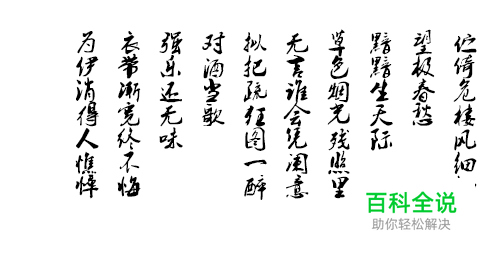 伫倚危楼风细细
望极春愁
黯黯生天际
草色烟光残照里
无言谁会凭阑意
拟把疏狂图一醉
对酒当歌
强乐还无味
衣带渐宽终不悔
为伊消得人憔悴
百科全说
助你轻松解决